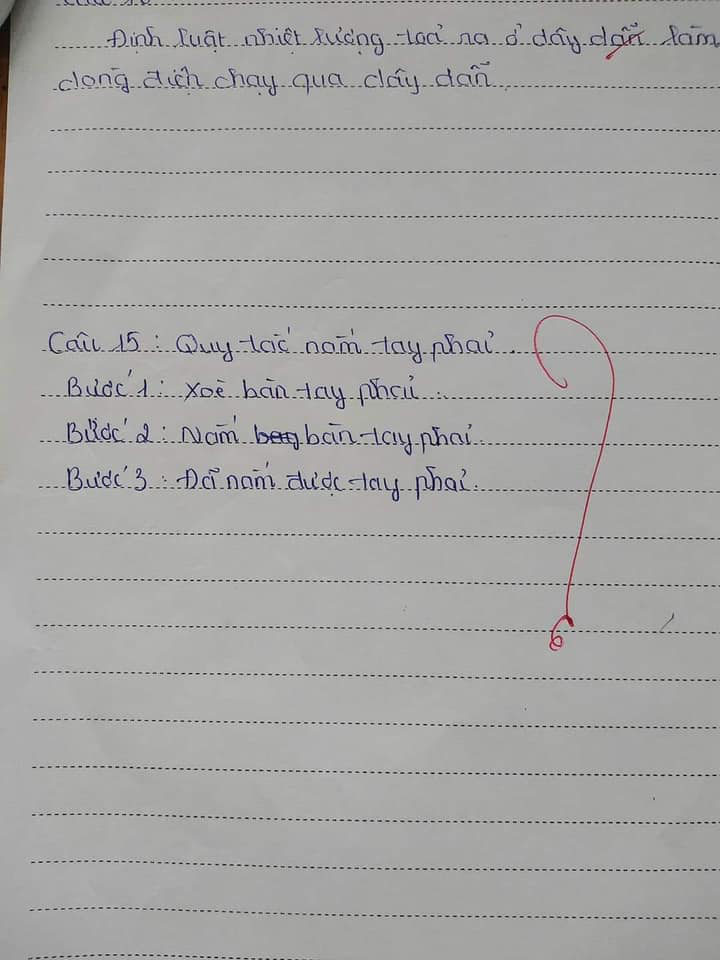 Định luật nhiệt lượng toả ra ở dây dẫn làm
dòng điện chạy qua dây dẫn
Câu 15 : Quy tắc nắm tay phải .
Bước 1 : Xoè bàn tay phải .
Bước 2 : Nắm bàn tay phải .
Bước 3 : Đã nắm được tay phải .